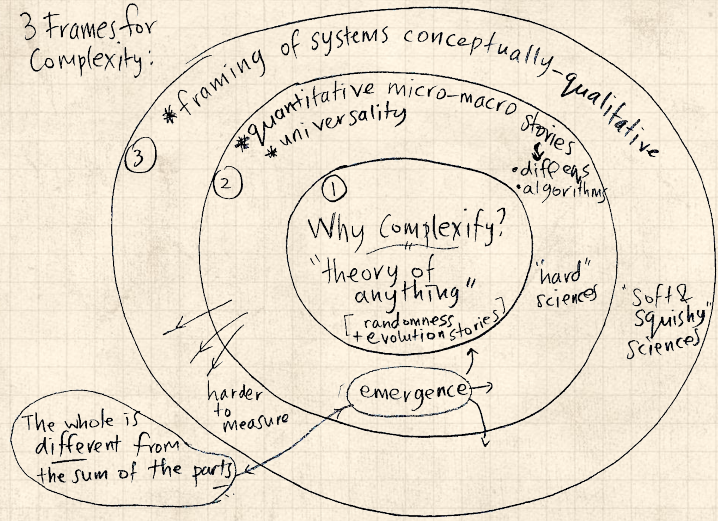 3 Frames for
Complexity:
*framing of systems conceptually-qualitative
*quantitative micro-macro stories
*universality
•diffeqs
•algorithms
3
2
1
Why Complexify?
"theory of
anything"
[randomness
+evolution stories]
"hard"
sciences
"Soft &
squishy"
sciences
emergence
harder
to
measure
The whole is
different from
the sum of the parts